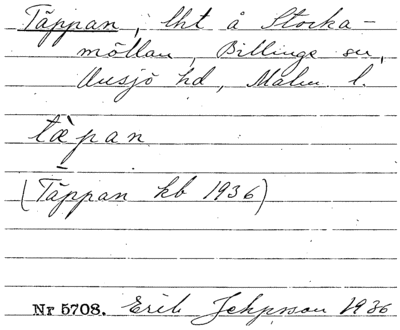 Täppan, lht å Stocka-
möllan, Billinge sn,
Onsjö hd, Malm. l.
tæ̀pan
(Täppan kb 1936)
Nr 5708. Erik Jeppsson 1936